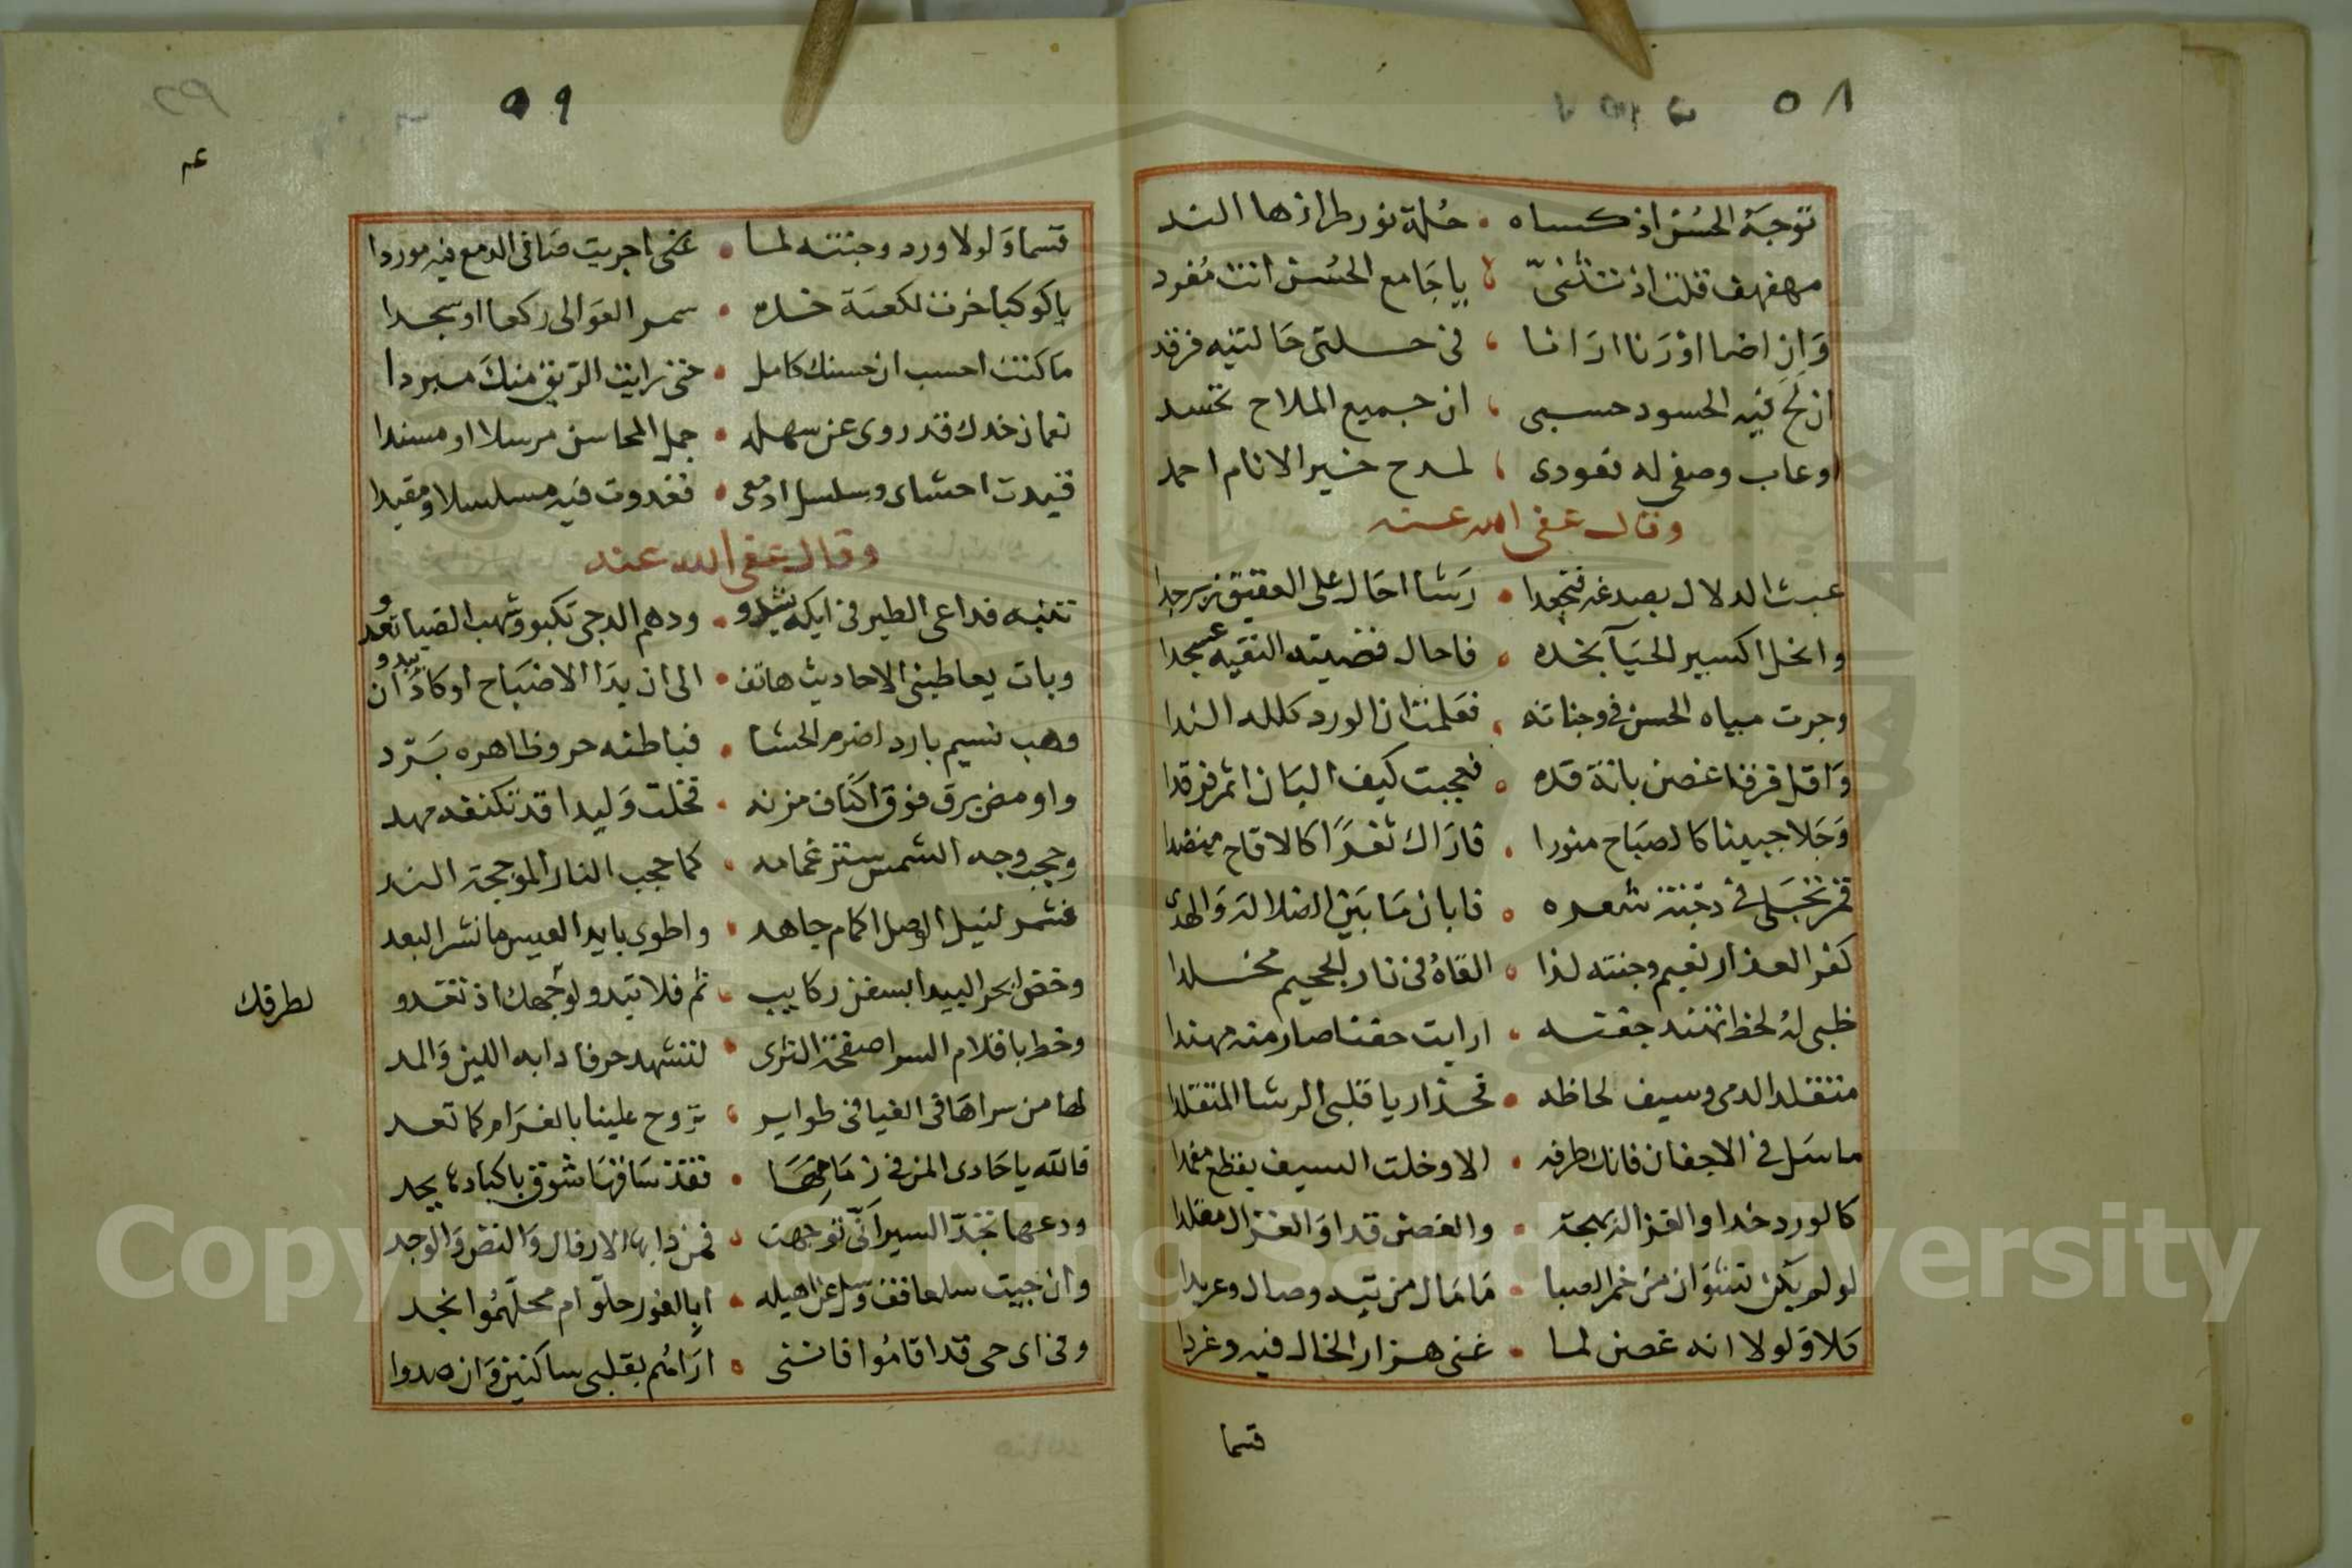 ٥٨
توجه الحسن اذ كساه • حلة نور طرازها الند
مهفهف قلت اذ تثنى • يا جامع الحسن انت مفرد
وان اضا اورنا ارانا • فى حلتى حالتيه فرقد
ان لح فيه الحسود حسبى • ان جميع الملاح تحسد
اوعاب وصفى له فعودى • لمدح خير الانام احمد
وقال عفى الله عنه
عبث الدلال بصدغه فتجعدا • رشا احال على العقيق زبرجدا
وانحل اكسير الحيآ بخده • فاحال فضيته النقيه عسجدا
وجرت مياه الحسن فى وجناته • فعلمت ان الورد كلله الندا
واقل فرقا غصن بانة قده • فعجبت كيف البان اثمر فرقدا
وجلا جبينا كالصباح منورا • فاراك ثغرًا كالاقاح منضدا
قمر تجلى فى دجنة شعره • فابان ما بين الضلالة والهدى
كفر العذار نعيم وجنته لذا • القاه فى نار الجحيم مخلدا
ظبى له لحظ تهند جفنه • ارايت جفنا صار منه مهندا
متقلد الدمى وسيف لحاظه • فحذار يا قلبى الرشا المتقلدا
ما سل فى الاجفان فاتك طرفه • الا وخلت السيف يقطع مغمدا
كالورد خدا والقمر البهجة • والغصن قدا والغزال مقلدا
لو لم يكن نشوان من خمر الصبا • ما مال من تيه وصال وعربدا
كلا ولولا انه غصن لما • غنى هزار الخال فيه وغردا
قسما
٥٩
قسما ولولا ورد وجنته لما • عنى اجريت صافى الدمع فيه موردا
يا كوكبا خرت لكعبة خده • سمر العوالى ركعا او سجدا
ما كنت احسب ان حسنك كامل • حتى رايت الريق منك مبردا
نعمان خدك قد روى عن سهله • جمل المحاسن مرسلا او مسندا
قيدت احشاى وسلسل ادمعى • فغدوت فيه مسلسلا ومقيدا
وقال عفى الله عنه
تنبه فداعى الطير فى ايكه يشدو • ودهم الدجى تكبو وشهب الضيا تعدو
وبات يعاطينى الاحاديث هاتف • الى ان بدا الاصباح او كاد ان يبدو
وهب نسيم بارد اضرم الحشا • فباطنه حر وظاهره برد
واومض برق فوق اكناف مزنه • فخلت وليدا قد تكنفه مهد
وحجب وجه الشمس ستر غمامه • كما حجب النار الموججة الند
فشمر لنيل الوصل اكمام جاهد • واطوى بايد العيس ما نشر البعد
وخض ابحر البيدا بسفن ركايب • نم فلا تبدو لوجهك اذ تغدو
وخط باقلام السرا صفحة الثرى • لتشهد حرفا دابه اللين والمد
لها من سراها فى الفيافى طواير • تروح علينا بالغرام كما تغد
فالله يا حادى المزن فى زمامها • فقد سافرنا شوق باكبادنا يحد
ودعها تجد السير انى توجهت • فمن دابها الارقال والنص والوجد
وان جيت سلعا فقف وسل عن اهيله • ابالغور حلوا ام محلهموا نجد
وفى اى حى قد اقاموا فانسنى • اراهم بقلبى ساكنين وان صدوا
لطرقك
Copyright © King Saud University